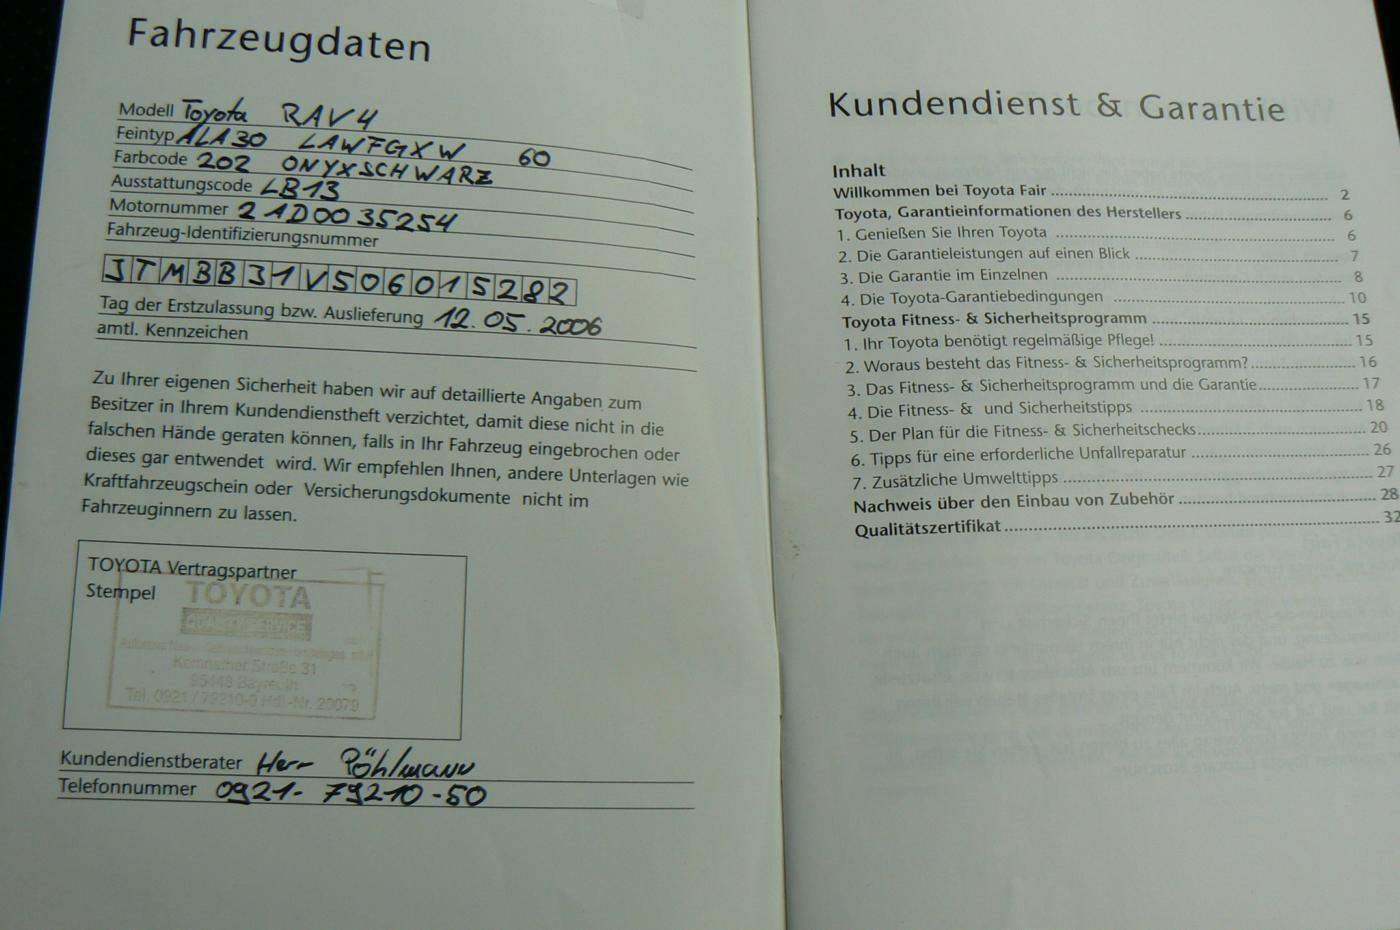 Fahrzeugdaten
Modell Toyota RAV4
Feintyp ALA30 LAWFGXW 60
Farbcode 202 ONYXSCHWARZ
Ausstattungscode LB13
Motornummer 2AD0035254
Fahrzeug-Identifizierungsnummer
JTMBB31V506015282
Tag der Erstzulassung bzw. Auslieferung 12.05.2006
amtl. Kennzeichen
Zu Ihrer eigenen Sicherheit haben wir auf detaillierte Angaben zum
Besitzer in Ihrem Kundendienstheft verzichtet, damit diese nicht in die
falschen Hände geraten können, falls in Ihr Fahrzeug eingebrochen oder
dieses gar entwendet wird. Wir empfehlen Ihnen, andere Unterlagen wie
Kraftfahrzeugschein oder Versicherungsdokumente nicht im
Fahrzeuginnern zu lassen.
TOYOTA Vertragspartner
Stempel
TOYOTA
QUALITY SERVICE
Straße 31
Bayreuth
Tel. 0921 / 79210-0 Hdl.-Nr. 20079
Kundendienstberater Herr Pöhlmann
Telefonnummer 0921-79210-50
Kundendienst & Garantie
Inhalt
Willkommen bei Toyota Fair 2
Toyota, Garantieinformationen des Herstellers 6
1. Genießen Sie Ihren Toyota 6
2. Die Garantieleistungen auf einen Blick 7
3. Die Garantie im Einzelnen 8
4. Die Toyota-Garantiebedingungen 10
Toyota Fitness- & Sicherheitsprogramm 15
1. Ihr Toyota benötigt regelmäßige Pflege! 15
2. Woraus besteht das Fitness- & Sicherheitsprogramm? 16
3. Das Fitness- & Sicherheitsprogramm und die Garantie 17
4. Die Fitness- & und Sicherheitstipps 18
5. Der Plan für die Fitness- & Sicherheitschecks 20
6. Tipps für eine erforderliche Unfallreparatur 26
7. Zusätzliche Umwelttipps 27
Nachweis über den Einbau von Zubehör 28
Qualitätszertifikat 32